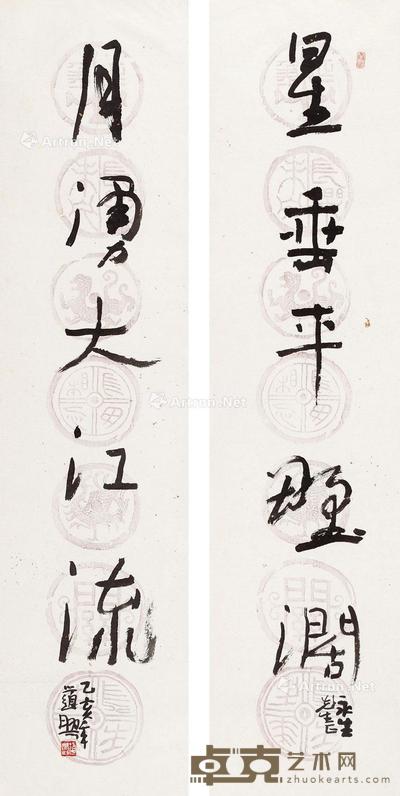 星垂平野濶
永生
月涌大江流
乙亥年
Artron.Net
Artron.Net
Artron.Net
卓克艺术网
zhuokearts.com